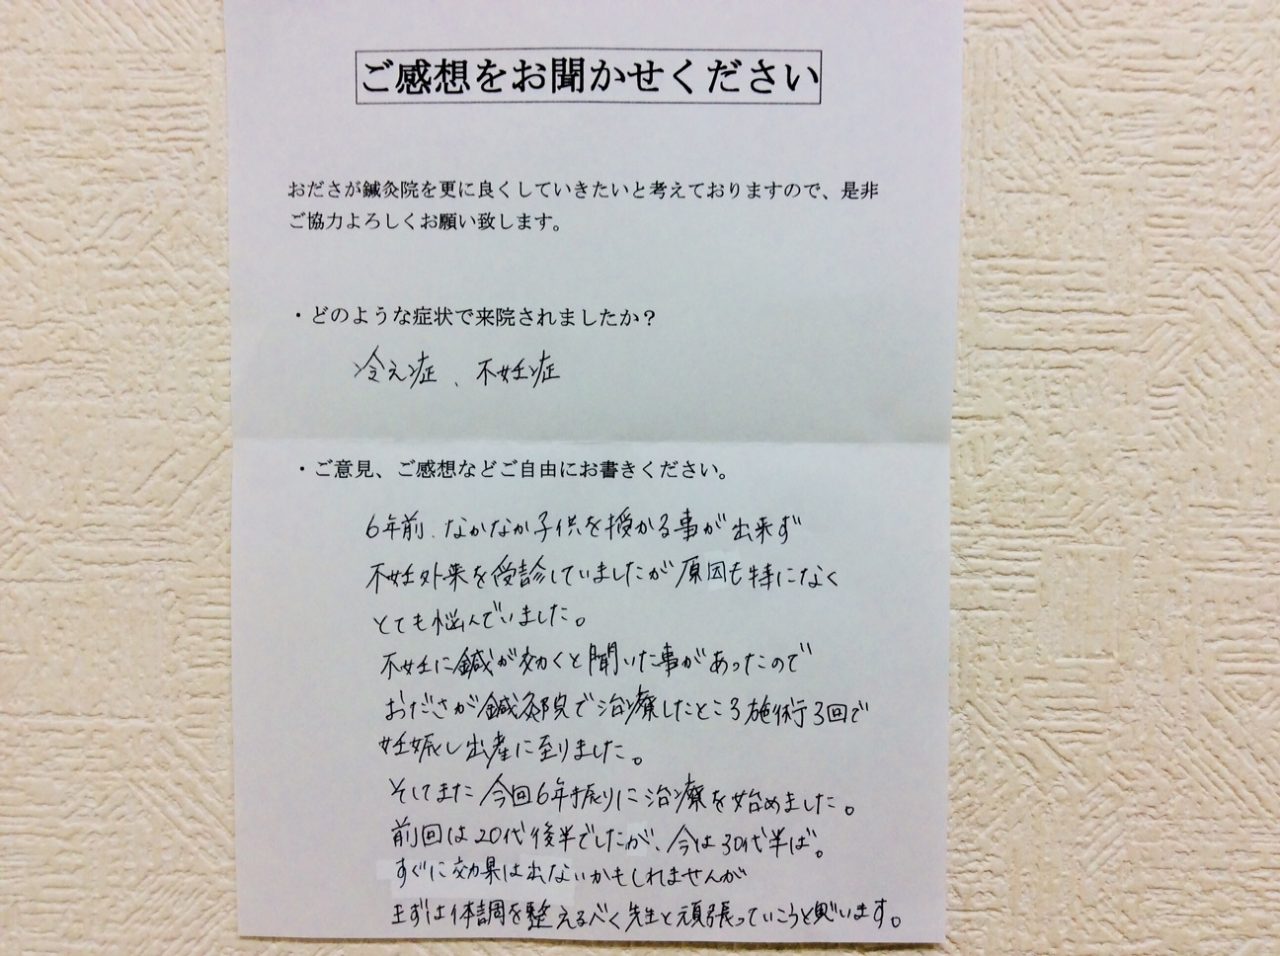 ご感想をお聞かせください
おださが鍼灸院を更に良くしていきたいと考えておりますので、是非
ご協力よろしくお願い致します。
・どのような症状で来院されましたか？
冷え症、不妊症
・ご意見、ご感想などご自由にお書きください。
6年前、なかなか子供を授かる事が出来ず
不妊外来を受診していましたが原因も特になく
とても悩んでいました。
不妊に鍼が効くと聞いた事があったので
おださが鍼灸院で治療したところ施術3回で
妊娠し出産に至りました。
そしてまた今回6年振りに治療を始めました。
前回は20代後半でしたが、今は30代半ば。
すぐに効果は出ないかもしれませんが
まずは体調を整えるべく先生と頑張っていこうと思います。